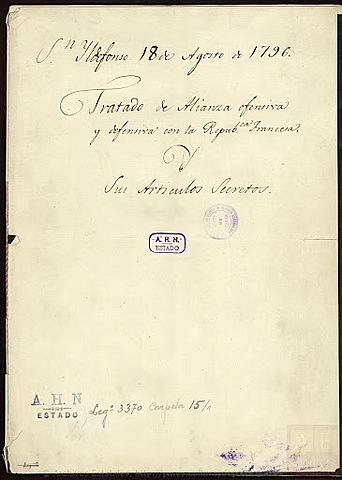 S.n Yldefonso 18 de Agosto de 1796.
Tratado de Alianza ofensiva
y defensiva con la Repub.ca Francesa.
Y
Sus Articulos Secretos.
A. H. N.
ESTADO
A. H. N
ESTADO
Leg.º 3370 Carpeta 15/1